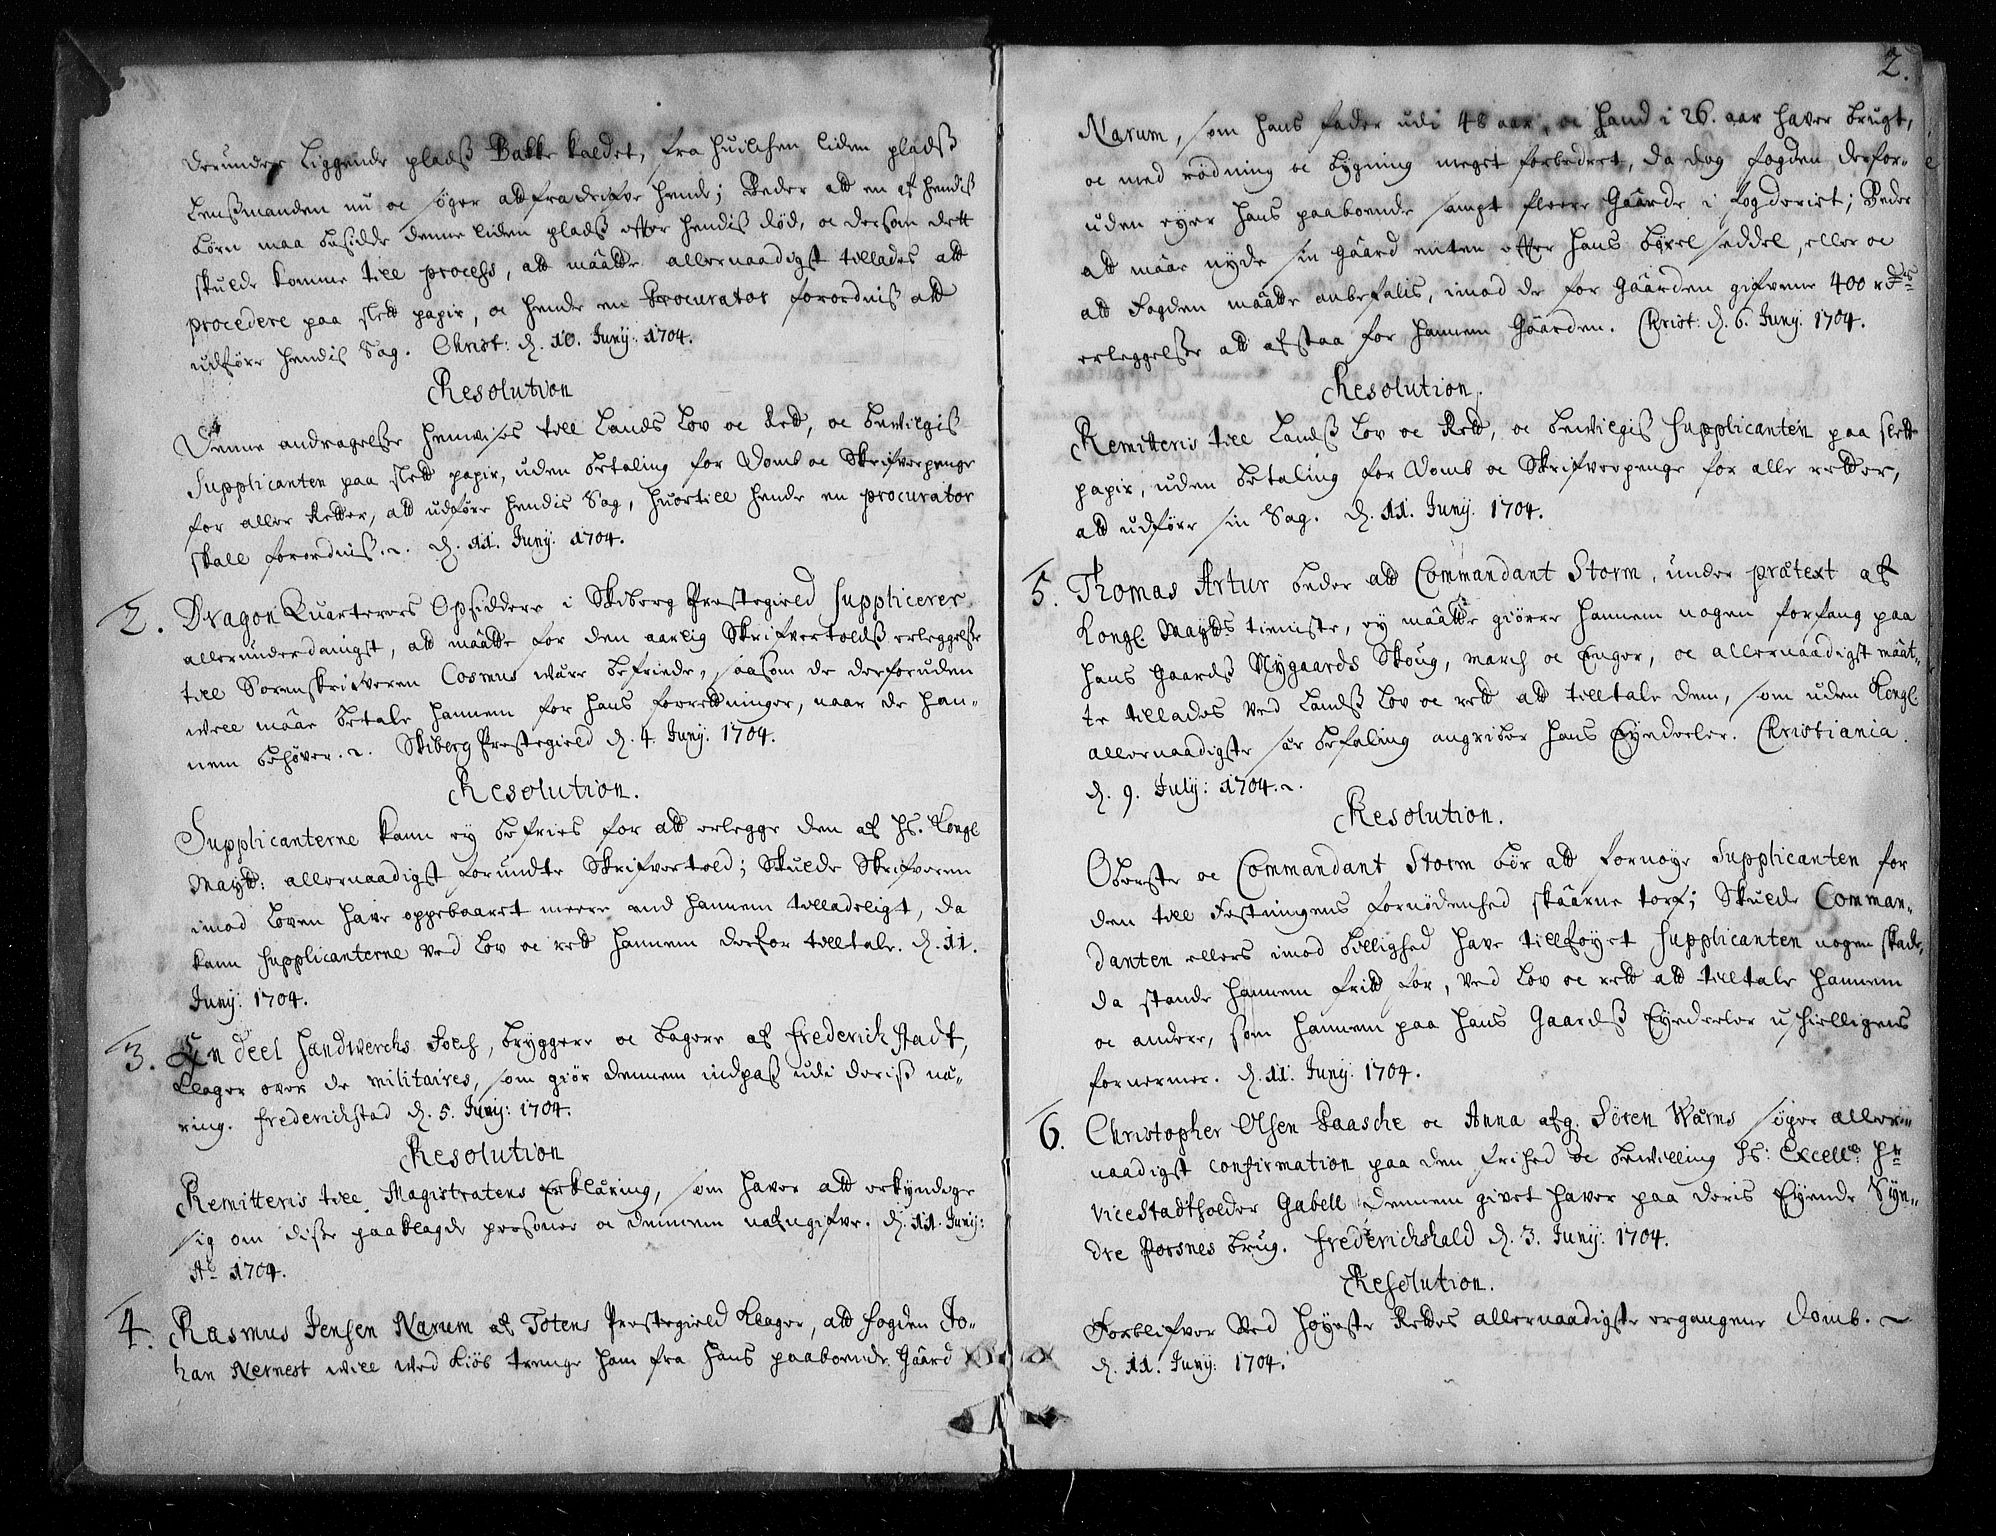 derunder liggende pladß Bakke kaldet, fra huilchen liden pladß
Lensmanden nu oc søger att fradrifve hende; Beder att en af hendis
børn maa besidde denne liden pladß effter hendis død, oc dersom dett
skulde komme till process, att maatte allernaadigst tillades att
procedere paa slett papir, oc hende en Procurator forordnis att
udføre hendis Sag. Christ: d. 10. Junij: 1704.
Resolution
Denne andragelse henvises till Lands Lov oc Rett, oc bevilgis
Supplicanten paa slett papir, uden betaling for Domb oc Skrifverpenge
for aller Retter, att udføre hendis Sag, huortill hende en procurator
skall forordnis. d. 11. Junij: 1704.
2. Dragon Quarterers Opsiddere i Skiberg Prestegield Supplicerer
allerunderdanigst, att maatte for den aarlig Skrifvertoldß erleggelse
till Sorenskrifveren Cosmus være befriede, saasom de derforuden
well maae betale hannem for hans forretninger, naar de han-
nem behøver. Skiberg Prestegield d. 4. Junij: 1704.
Resolution.
Supplicanterne kann ey befries for att erlegge den af Hs. Kongl
Maytt: allernaadigst forundte Skrifvertold; Skulde Skrifveren
imod Loven have oppebaaret meere end hannem tilladeligt, da
kann Supplicanterne ved Lov oc rett hannem derfor tilltale. d. 11.
Junij: 1704.
3. En deel Handwerchs Folch, bryggere oc bagere af Frederichstadt,
klager over de militaires, som giør dennem indpaß udi deriß næ-
ring. Frederichstad d. 5. Junij: 1704.
Resolution
Remitteris till Magistratens Erklæring, som haver att erkyndige
sig om disse paaklagde personer oc dennem nafngifve. d. 11. Junij:
Ao 1704.
4. Rasmus Jensen Narum af Totens Prestegield klager, att fogden Jo-
han Nernest will wed Kiøb trenge ham fra hans paaboende Gaard
2.
Narum, som hans fader udi 48 aar, oc hand i 26. aar haver brugt,
oc med rødning oc bygning meget forbedret, da dog fogden derfor-
uden eyer hans paaboende sampt fleere Gaarde i fogderiet; Beder
att maae nyde sin Gaard enten effter hans byxel seddel, eller oc
att Fogden maatte anbefalis, imod de for Gaarden gifvene 400 rdrs
erleggelse att afstaa for hannem Gaarden. Christ: d. 6. Junij: 1704.
Resolution.
Remitteris till Landß Lov oc Rett, oc bevilgis Supplicanten paa slett
papir, uden betaling for Domb oc Skrifverpenge for alle retter,
att udføre sin Sag. d. 11. Junij: 1704.
5. Thomas Artur beder att Commandant Storm, under prætext af
Kongl. Maytts tieniste, ey maatte giøre hannem nogen forfang paa
hans Gaardß Nygaards Skoug, march oc Enger, oc allernaadigst maat-
te tillades ved Landß Lov oc rett att tilltale dem, som uden Kongl
allernaadigste sær befaling angriber hans Eyendeler. Christiania
d. 9. July: 1704.
Resolution.
Oberste oc Commandant Storm bør att fornøye Supplicanten for
den till Festningens fornødenhed skaarne torf; Skulde Comman-
danten ellers imod billighed have tillføyet Supplicanten nogen skade,
da stande hannem fritt for, ved Lov oc rett att tilltale hannem
oc andere, som hannem paa hans Gaardß Eyendeeler uskielligens
fornermer. d. 11. Junij: 1704.
6. Christopher Olsen Paasche oc Anna afg. Sören Wærns søger aller-
naadigst confirmation paa den frihed oc bevilling Hs: Excell: Hr
Vicestadtholder Gabell dennem givet haver paa deris Eyende Syn-
dre Porsnes brug. Frederichshald d. 3. Junij: 1704.
Resolution.
Forblifver ved Høyeste Rettes allernaadigste ergangene Domb.
d. 11. Junij: 1704.